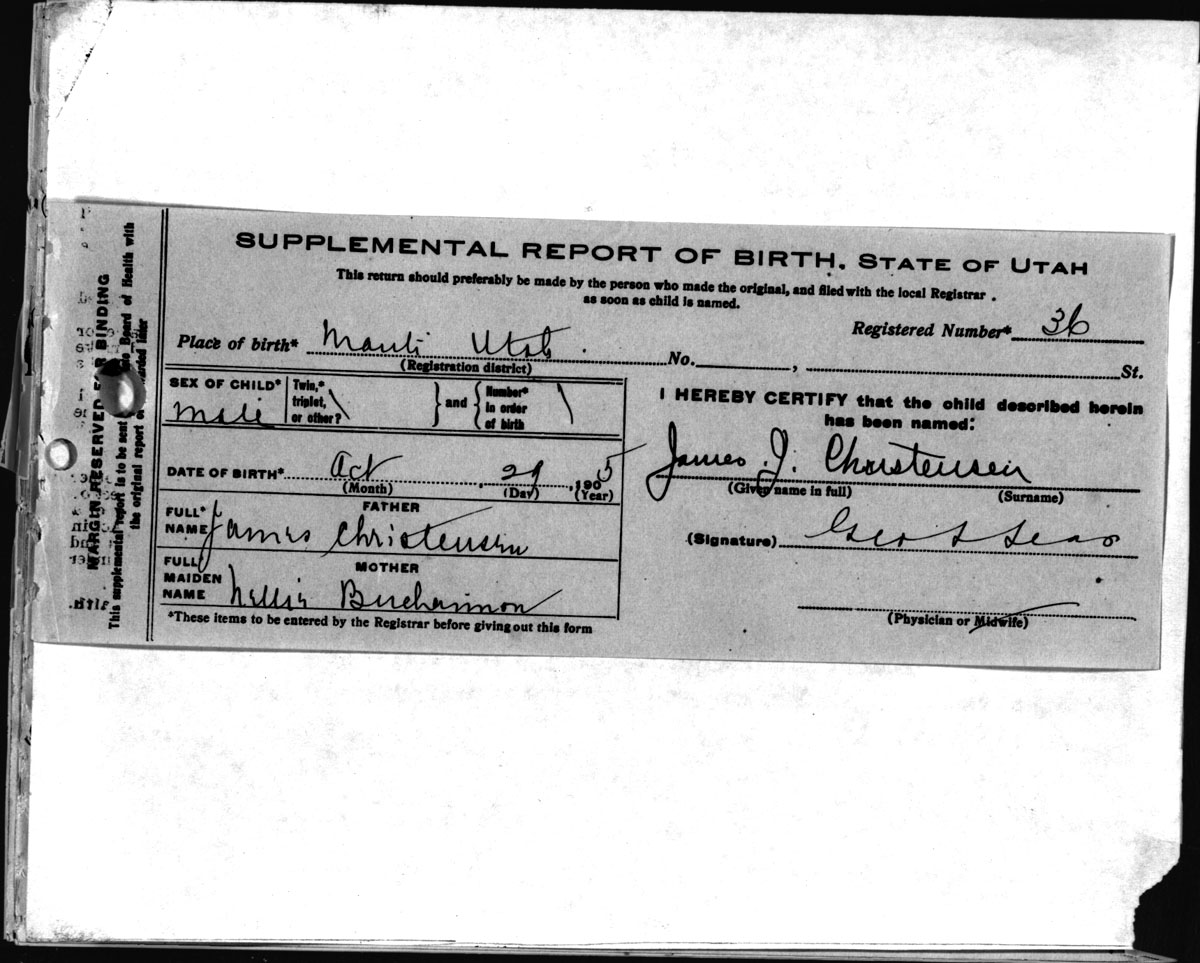 SUPPLEMENTAL REPORT OF BIRTH. STATE OF UTAH
This return should preferably be made by the person who made the original, and filed with the local Registrar .
as soon as child is named.
Registered Number* 36
Place of birth* Manti Utah No. , St.
(Registration district)
SEX OF CHILD* Male
Twin,* triplet, or other? } and { Number* in order of birth
DATE OF BIRTH* Oct 29, 1905
(Month) (Day) (Year)
FATHER
FULL* NAME James Christensen
MOTHER
FULL MAIDEN NAME Nellie
*These items to be entered by the Registrar before giving out this form
I HEREBY CERTIFY that the child described herein
has been named:
James J. Christensen
(Given name in full) (Surname)
(Signature) Geo
(Physician or Midwife)
MARGIN RESERVED FOR BINDING
This supplemental report is to be sent Board of Health with
the original report